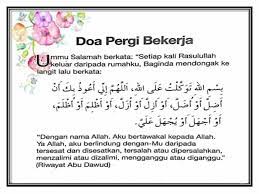 Doa Pergi Bekerja
Ummu Salamah berkata: "Setiap kali Rasulullah
keluar daripada rumahku, Baginda mendongak ke
langit lalu berkata:
بِسْمِ اللهِ تَوَكَّلْتُ عَلَى اللهِ، اَللّٰهُمَّ إِنِّي أَعُوْذُ بِكَ أَنْ
أَضِلَّ أَوْ أُضَلَّ، أَوْ أَزِلَّ أَوْ أُزَلَّ، أَوْ أَظْلِمَ أَوْ أُظْلَمَ،
أَوْ أَجْهَلَ أَوْ يُجْهَلَ عَلَيَّ.
"Dengan nama Allah. Aku bertawakal kepada Allah.
Ya Allah, aku berlindung dengan-Mu daripada
tersesat dan disesatkan, tersalah atau dipersalahkan,
menzalimi atau dizalimi, mengganggu atau diganggu."
(Riwayat Abu Dawud)